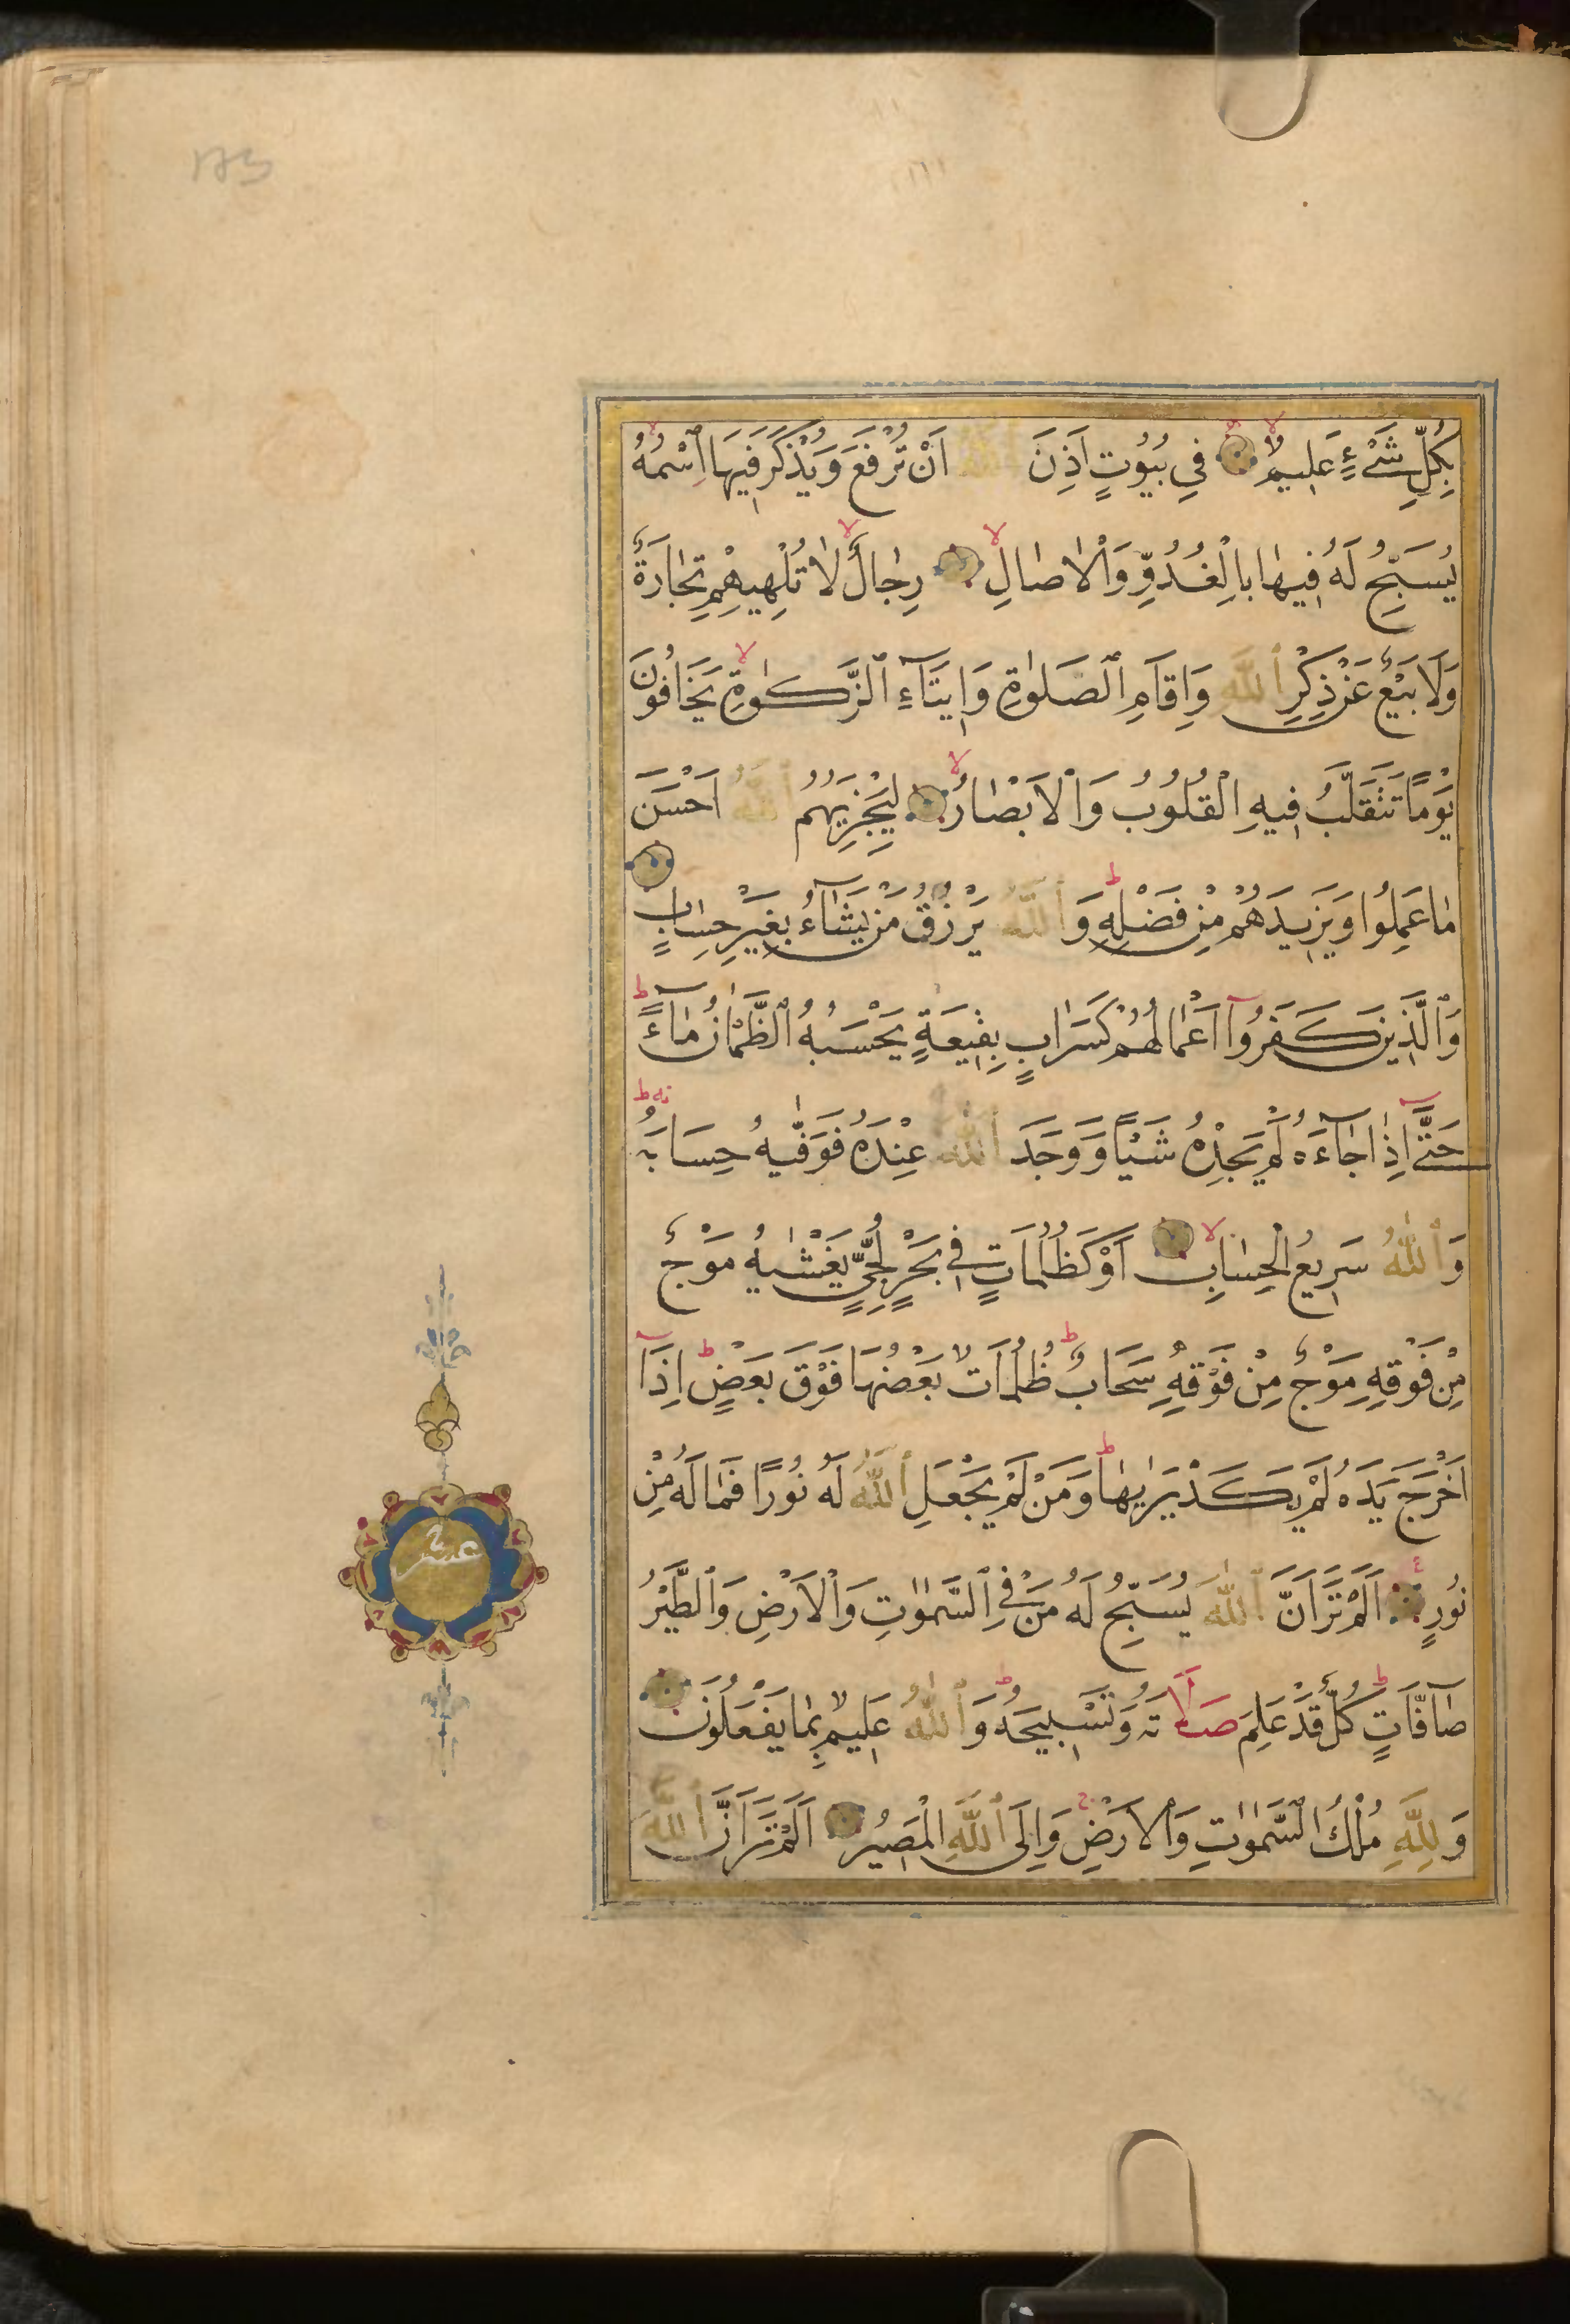 173
بِكُلِّ شَيْءٍ عَلِيمٌ فِي بُيُوتٍ اَذِنَ اللّٰهُ اَنْ تُرْفَعَ وَيُذْكَرَ فِيهَا اسْمُهُ
يُسَبِّحُ لَهُ فِيهَا بِالْغُدُوِّ وَالْاٰصَالِ رِجَالٌ لَا تُلْهِيهِمْ تِجَارَةٌ
وَلَا بَيْعٌ عَنْ ذِكْرِ اللّٰهِ وَاِقَامِ الصَّلٰوةِ وَاِيتَآءِ الزَّكٰوةِ يَخَافُونَ
يَوْمًا تَتَقَلَّبُ فِيهِ الْقُلُوبُ وَالْاَبْصَارُ لِيَجْزِيَهُمُ اللّٰهُ اَحْسَنَ
مَا عَمِلُوا وَيَزِيدَهُمْ مِنْ فَضْلِهِ وَاللّٰهُ يَرْزُقُ مَنْ يَشَآءُ بِغَيْرِ حِسَابٍ
وَالَّذِينَ كَفَرُوٓا اَعْمَالُهُمْ كَسَرَابٍ بِقِيعَةٍ يَحْسَبُهُ الظَّمْاٰنُ مَآءً
حَتّٰٓى اِذَا جَآءَهُ لَمْ يَجِدْهُ شَيْـًٔا وَوَجَدَ اللّٰهَ عِنْدَهُ فَوَفّٰيهُ حِسَابَهُ
وَاللّٰهُ سَرِيعُ الْحِسَابِ اَوْ كَظُلُمَاتٍ فِي بَحْرٍ لُجِّيٍّ يَغْشٰيهُ مَوْجٌ
مِنْ فَوْقِهِ مَوْجٌ مِنْ فَوْقِهِ سَحَابٌ ظُلُمَاتٌ بَعْضُهَا فَوْقَ بَعْضٍ اِذَآ
اَخْرَجَ يَدَهُ لَمْ يَكَدْ يَرٰيهَا وَمَنْ لَمْ يَجْعَلِ اللّٰهُ لَهُ نُورًا فَمَا لَهُ مِنْ
نُورٍ اَلَمْ تَرَ اَنَّ اللّٰهَ يُسَبِّحُ لَهُ مَنْ فِي السَّمٰوٰتِ وَالْاَرْضِ وَالطَّيْرُ
صَآفَّاتٍ كُلٌّ قَدْ عَلِمَ صَلَاتَهُ وَتَسْبِيحَهُ وَاللّٰهُ عَلِيمٌ بِمَا يَفْعَلُونَ
عشر
وَلِلّٰهِ مُلْكُ السَّمٰوٰتِ وَالْاَرْضِ وَاِلَى اللّٰهِ الْمَصِيرُ اَلَمْ تَرَ اَنَّ اللّٰهَ